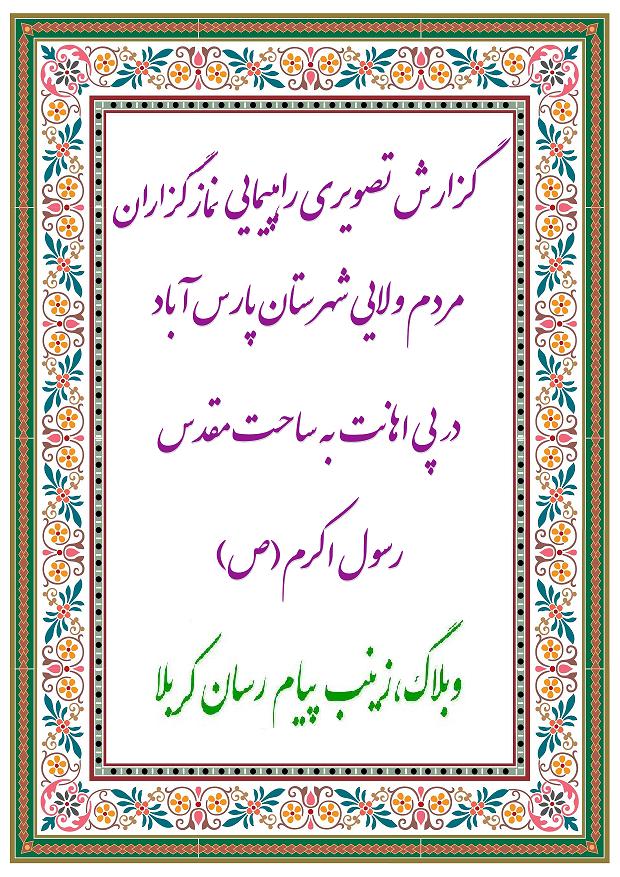 گزارش تصویری راهپیمایی نمازگزاران
مردم ولایی شهرستان پارس آباد
در پی اهانت به ساحت مقدس
رسول اکرم (ص)
وبلاگ،زینب پیام رسان کربلا